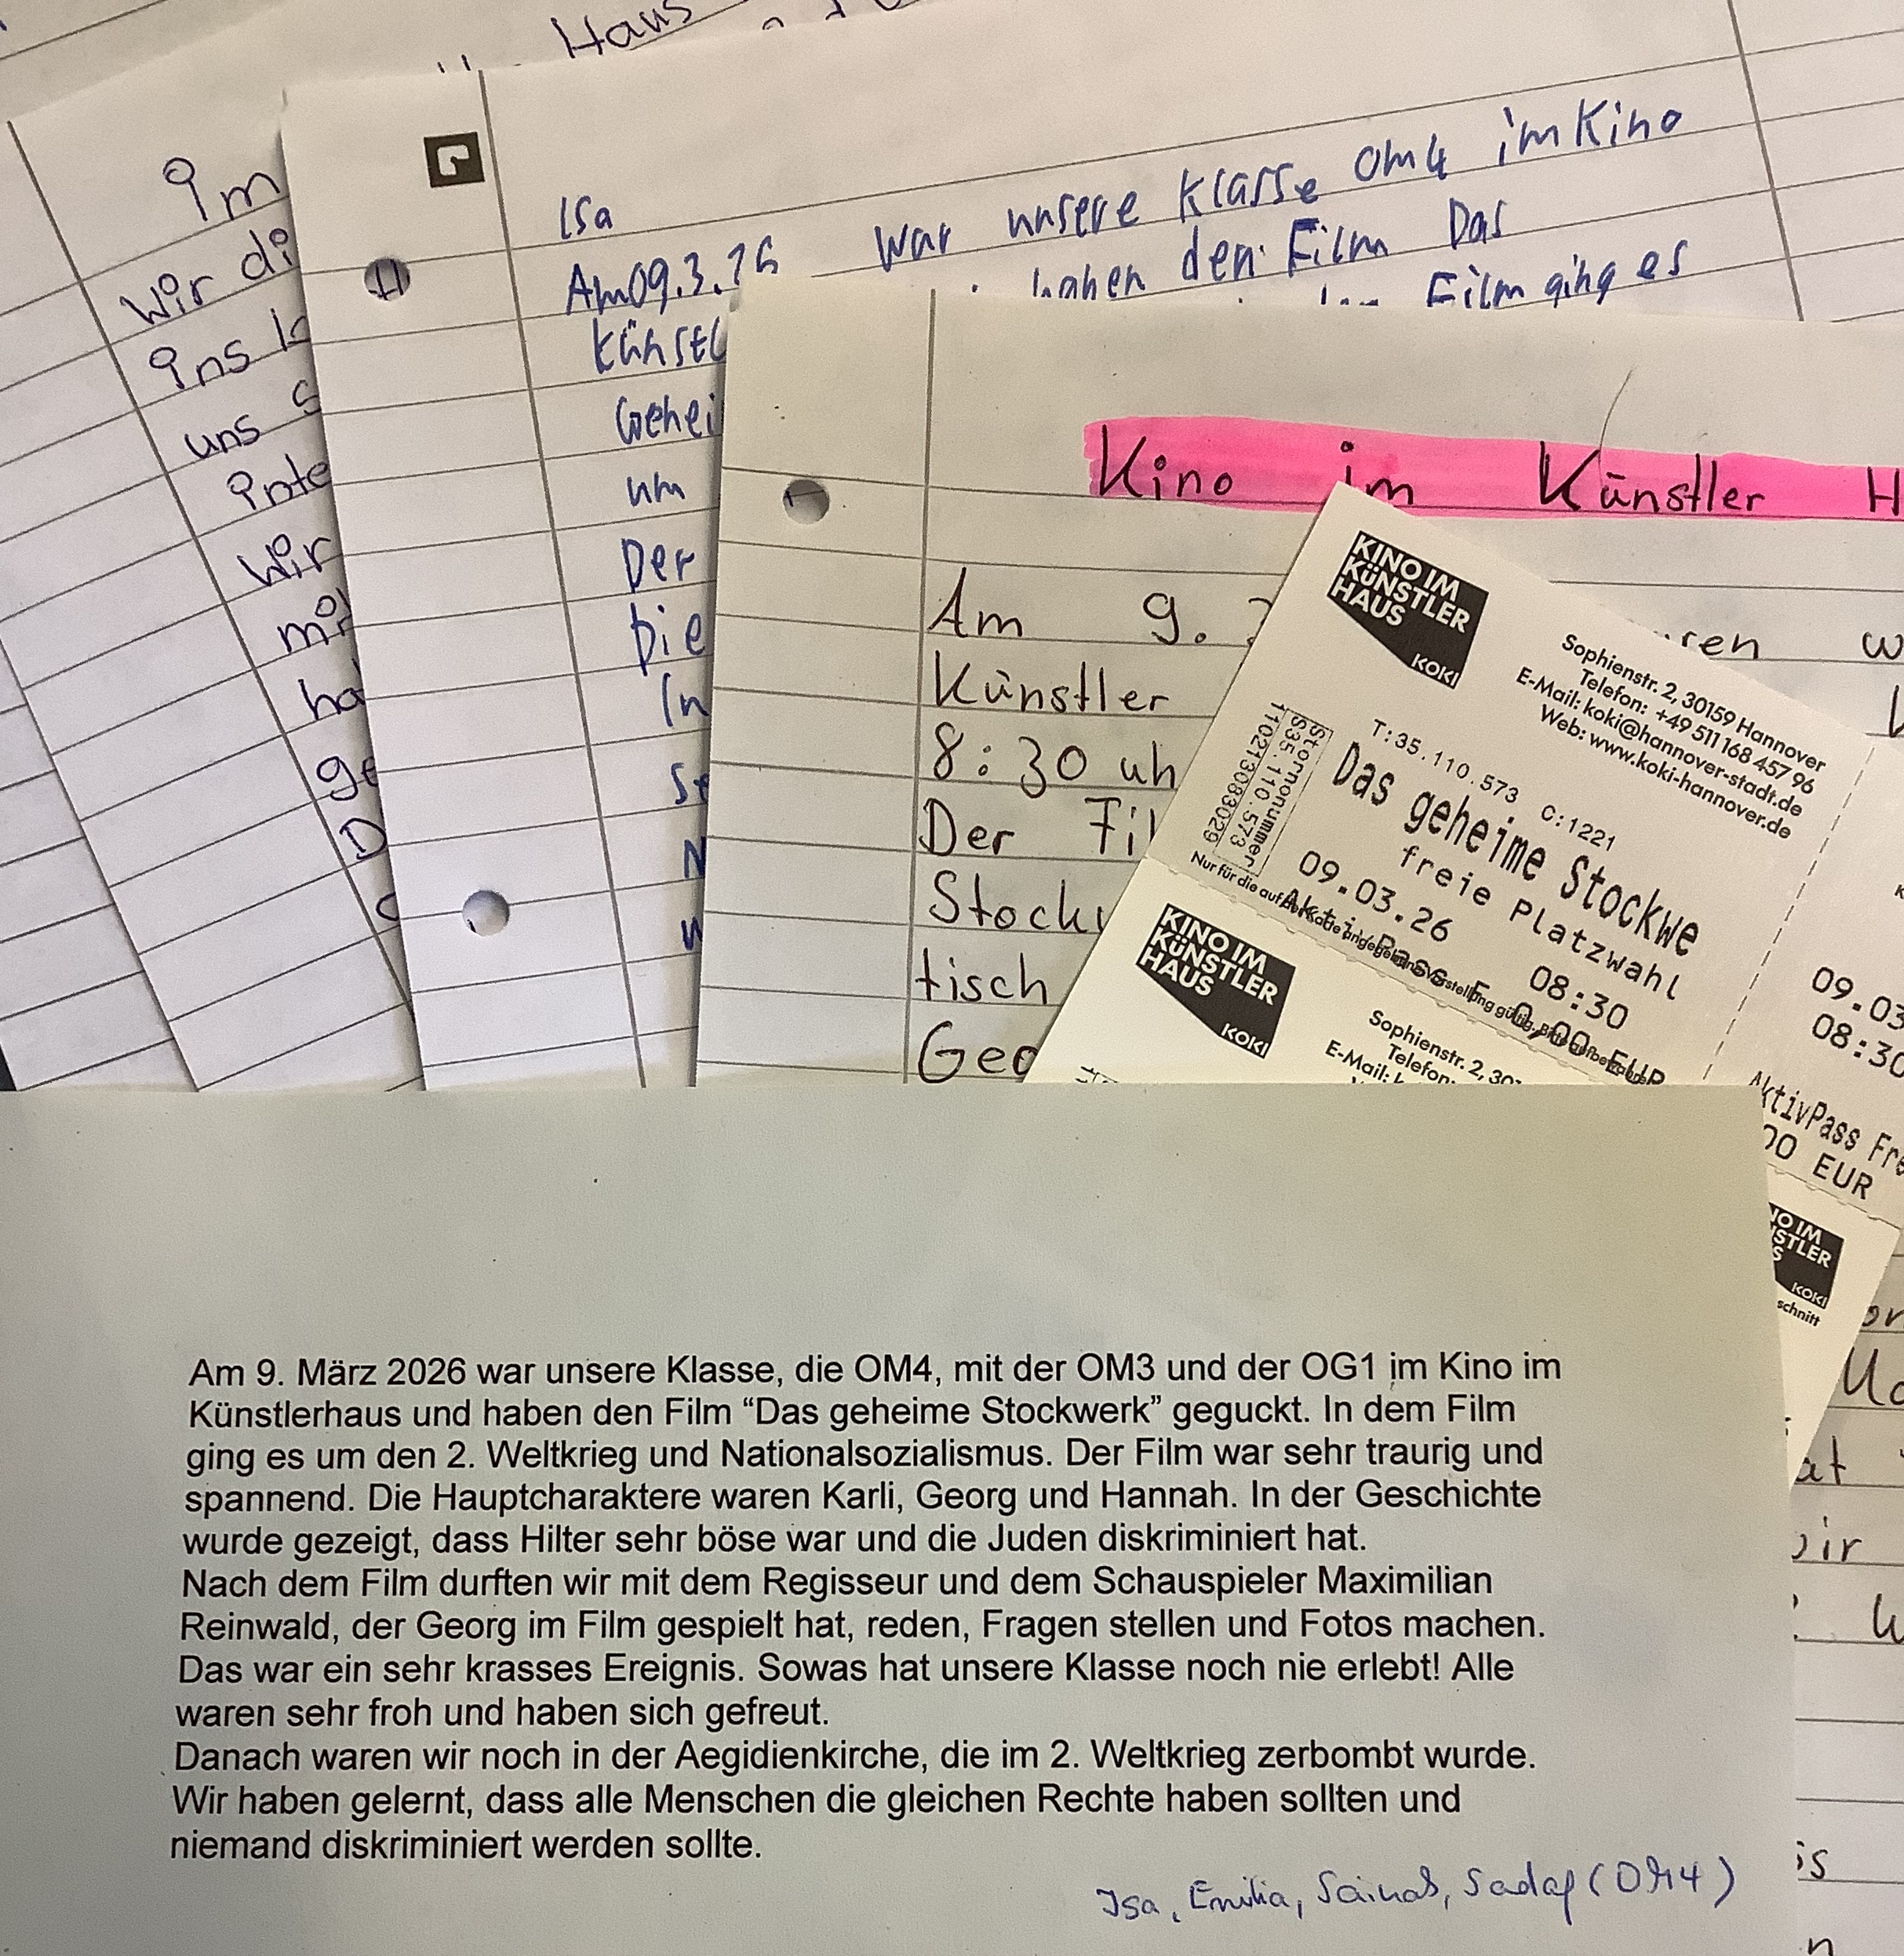 Haus
im
wir di
ins
uns
inte
wir
mi
ha
ge
D
Isa
Am 09.3.26 war unsere Klasse OM4 im Kino
Künstl haben den Film Das
Gehei Film ging es
um
Der
Die
In
Kino im Künstler H
Am 9. ren w
Künstler
8:30 uh
Der Fil
Stock
tisch
Geo
KINO IM
KÜNSTLER
HAUS
KOKI
Sophienstr. 2, 30159 Hannover
Telefon: +49 511 168 457 96
E-Mail: koki@hannover-stadt.de
Web: www.koki-hannover.de
T:35.110.573 C:1221
Das geheime Stockwe
freie Platzwahl
09.03.26 08:30
Aktiv-Pass F 0,00 EUR
Stornonummer
S35.110.573
110213083029
09.03
08:30
AktivPass Fre
00 EUR
KINO IM
KÜNSTLER
HAUS
KOKI
Sophienstr. 2, 30
Telefon:
E-Mail: k
NO IM
STLER
S
KOKI
schnitt
at
wir
is
n
Am 9. März 2026 war unsere Klasse, die OM4, mit der OM3 und der OG1 im Kino im
Künstlerhaus und haben den Film “Das geheime Stockwerk” geguckt. In dem Film
ging es um den 2. Weltkrieg und Nationalsozialismus. Der Film war sehr traurig und
spannend. Die Hauptcharaktere waren Karli, Georg und Hannah. In der Geschichte
wurde gezeigt, dass Hilter sehr böse war und die Juden diskriminiert hat.
Nach dem Film durften wir mit dem Regisseur und dem Schauspieler Maximilian
Reinwald, der Georg im Film gespielt hat, reden, Fragen stellen und Fotos machen.
Das war ein sehr krasses Ereignis. Sowas hat unsere Klasse noch nie erlebt! Alle
waren sehr froh und haben sich gefreut.
Danach waren wir noch in der Aegidienkirche, die im 2. Weltkrieg zerbombt wurde.
Wir haben gelernt, dass alle Menschen die gleichen Rechte haben sollten und
niemand diskriminiert werden sollte.
Isa, Emilia, Sainab, Sadaf (OM4)